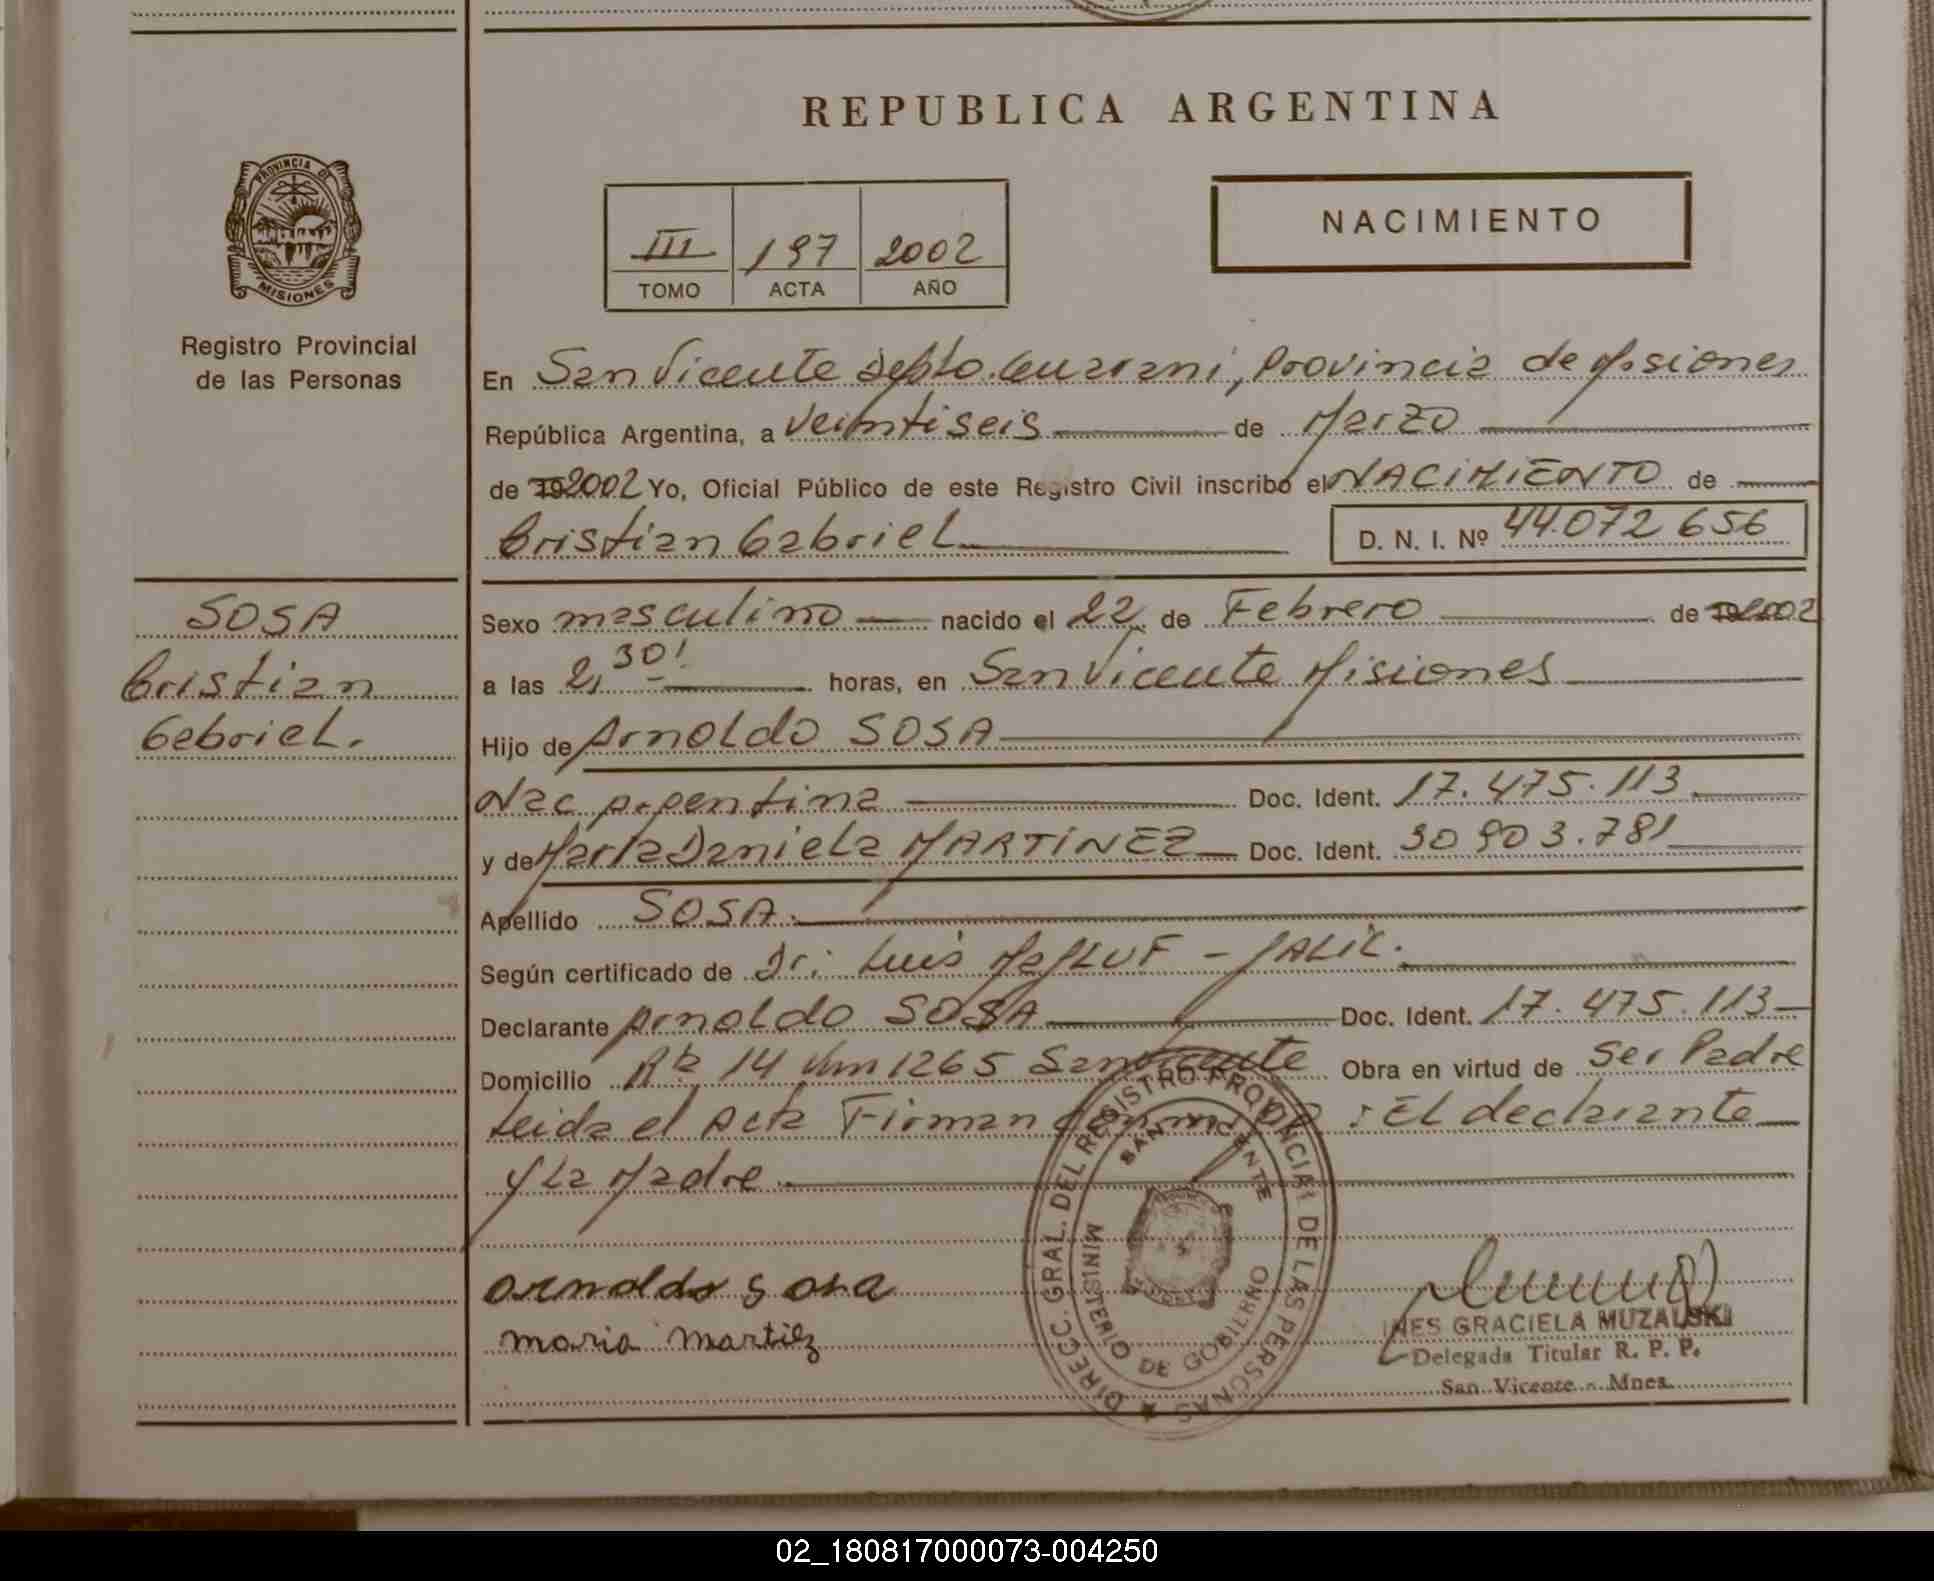 REPUBLICA ARGENTINA
PROVINCIA DE
MISIONES
Registro Provincial
de las Personas
NACIMIENTO
III 197 2002
TOMO ACTA AÑO
En San Vicente Depto. Guarani, Provincia de Misiones
República Argentina, a veintiseis de Marzo
de 2002 Yo, Oficial Público de este Registro Civil inscribo el NACIMIENTO de
Cristian Gabriel D. N. I. Nº 44.072 656
SOSA
Cristian
Gabriel.
Sexo masculino nacido el 22 de Febrero de 2002
a las 2,30' horas, en San Vicente Misiones
Hijo de Arnoldo SOSA
Nac Argentina Doc. Ident. 17.475.113
y de Maria Daniela MARTINEZ Doc. Ident. 30 903.781
Apellido SOSA
Según certificado de Dr: Luis
Declarante Arnoldo SOSA Doc. Ident. 17.475.113
Domicilio 14 km 1265 San Vicente Obra en virtud de Ser Padre
Leida el Acta Firman conmigo : El declarante
y La Madre
arnoldo sosa
maria martiez
DIRECC. GRAL. DEL REGISTRO PROVINCIAL DE LAS PERSONAS
SAN VICENTE
MINISTERIO DE GOBIERNO
INES GRACIELA MUZALSKI
Delegada Titular R. P. P.
San Vicente - Mnes.
02_180817000073-004250